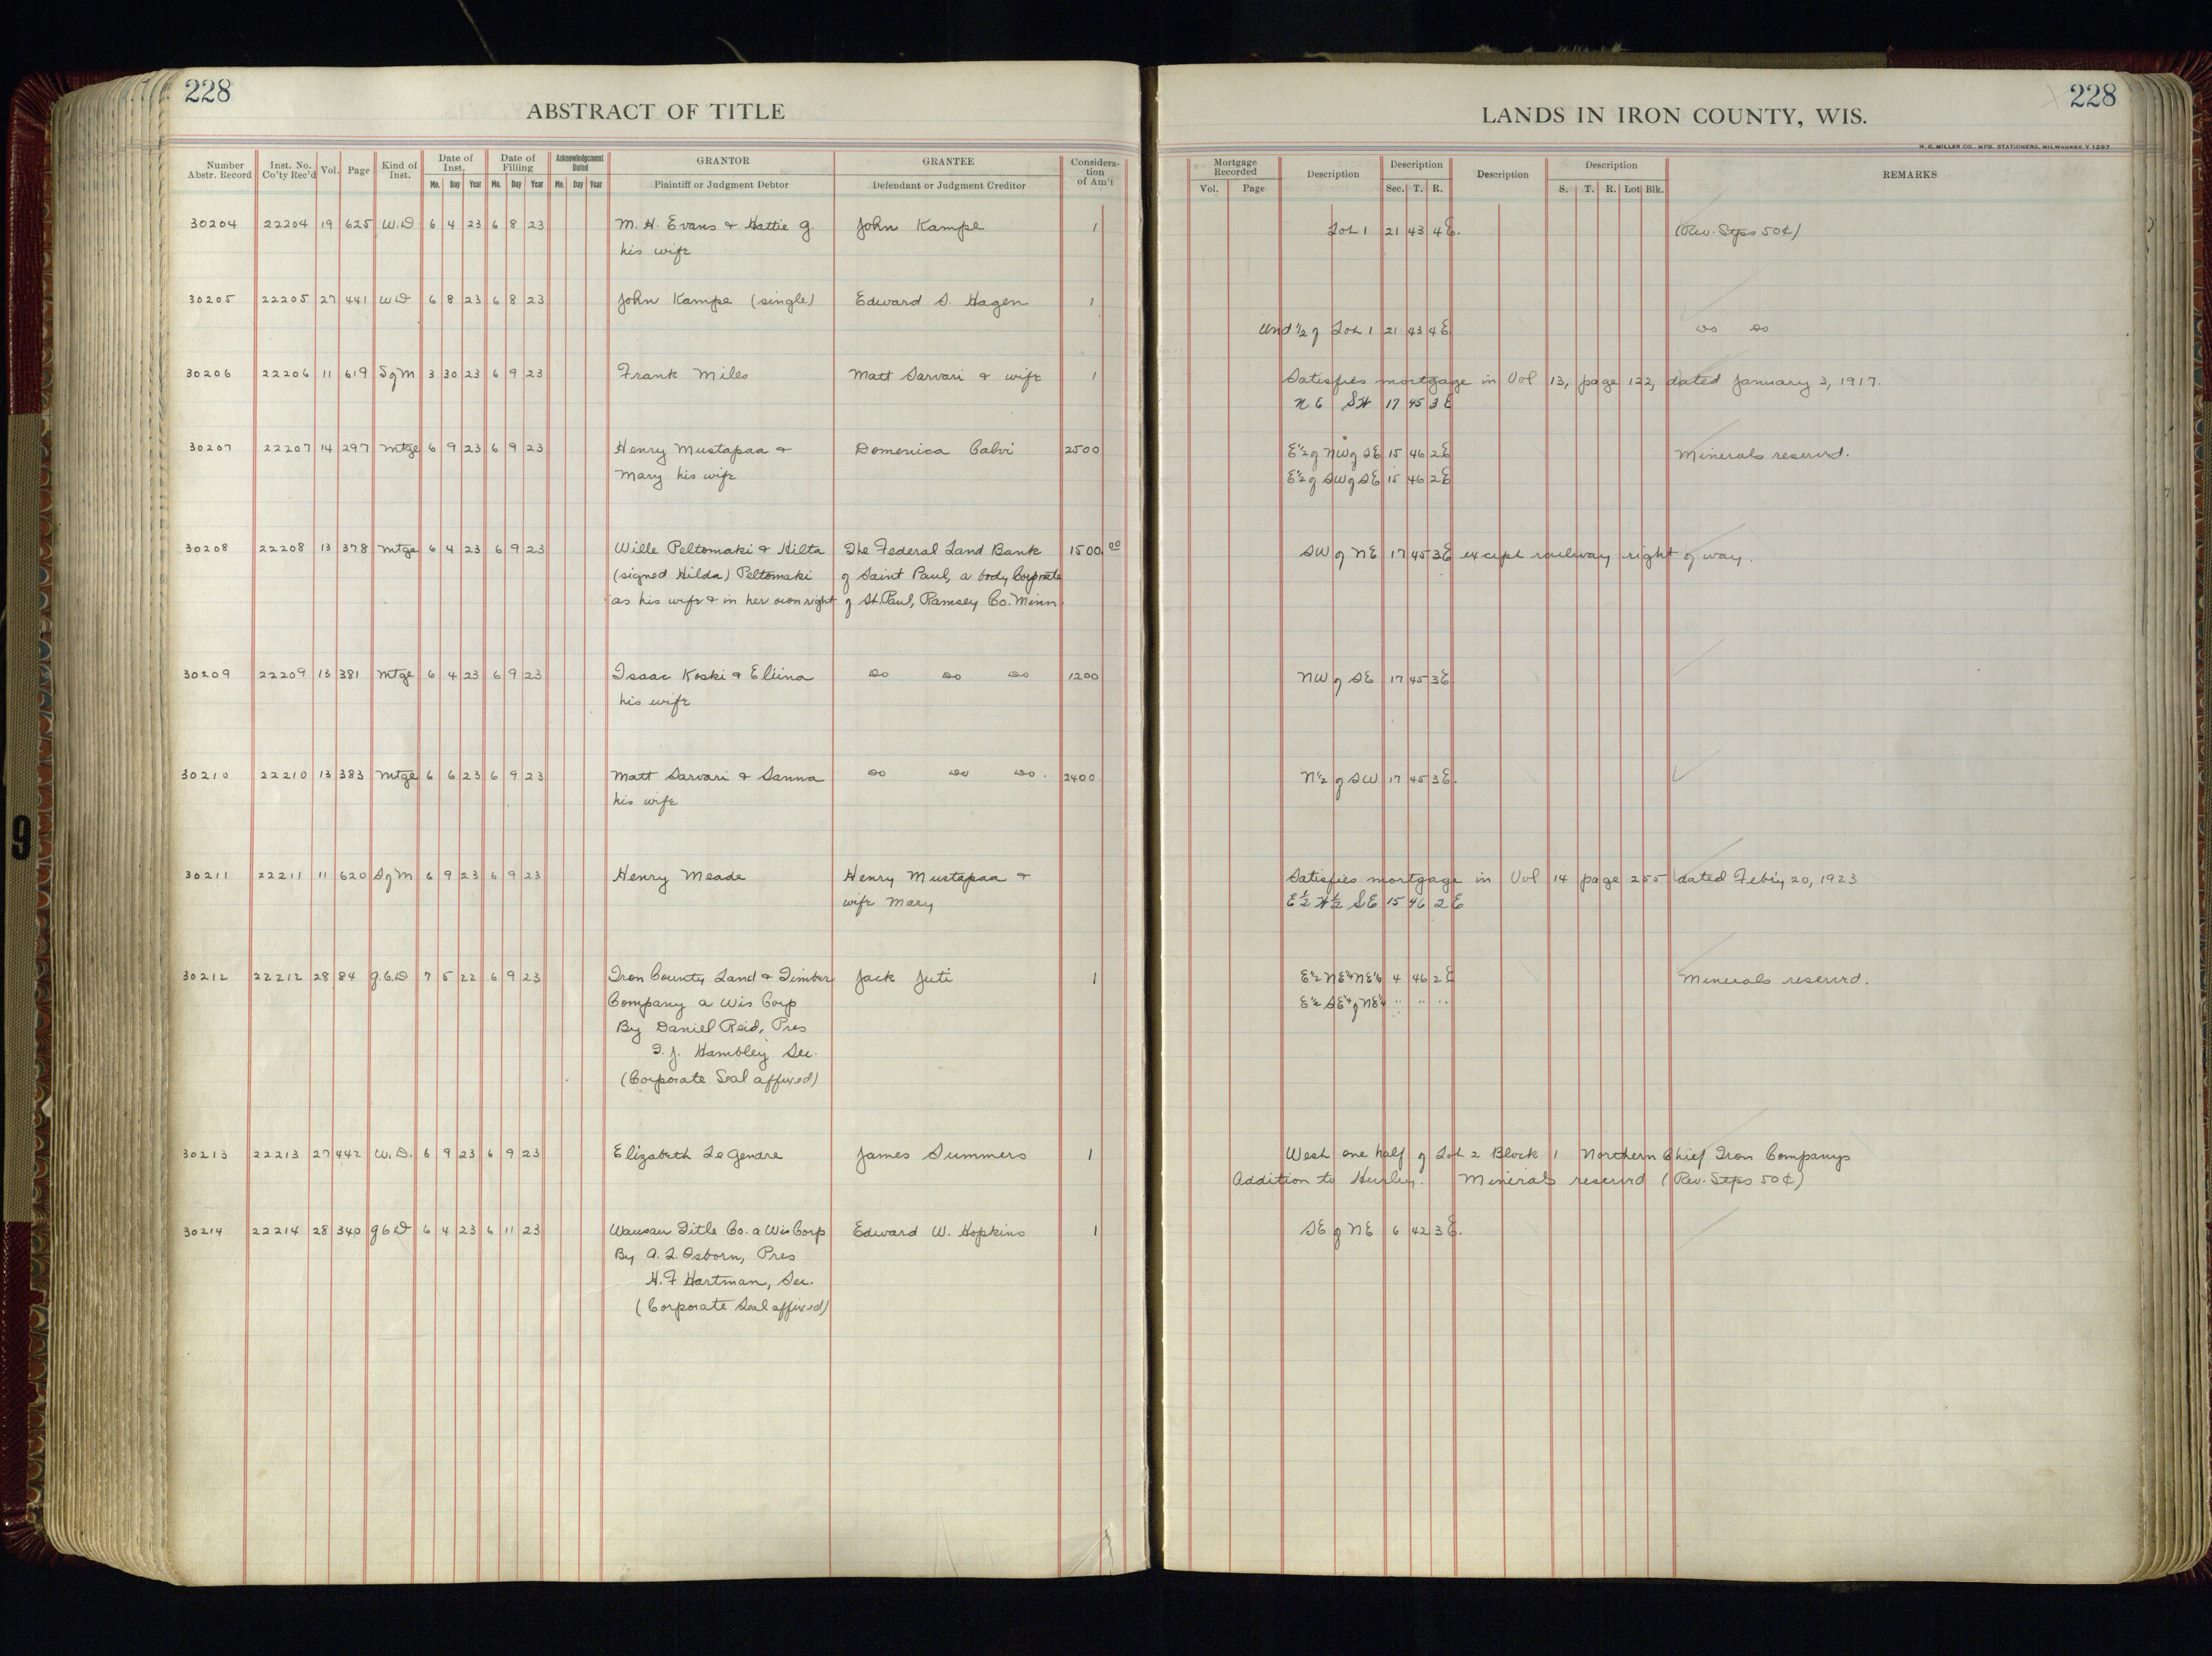 228
ABSTRACT OF TITLE
Number Abstr. Record Inst. No. Co'ty Rec'd Vol. Page Kind of Inst. Date of Inst. Date of Filling Acknowledgement Dated GRANTOR GRANTEE Considera-tion of Am't
Mo. Day Year Mo. Day Year Mo. Day Year Plaintiff or Judgment Debtor Defendant or Judgment Creditor
30204 22204 19 625 W.D 6 4 23 6 8 23 M. H. Evans & Hattie G. John Kampe 1
his wife
30205 22205 27 441 W D 6 8 23 6 8 23 John Kampe (single) Edward S. Hagen 1
30206 22206 11 619 S of M 3 30 23 6 9 23 Frank Miles Matt Sarvari & wife 1
30207 22207 14 297 Mtge 6 9 23 6 9 23 Henry Mustapaa & Domenica Calvi 2500
Mary his wife
30208 22208 13 378 Mtge 6 4 23 6 9 23 Wille Peltomaki & Hilta The Federal Land Bank 1500 00
(signed Hilda) Peltomaki of Saint Paul, a body Corporate
as his wife & in her own right of St. Paul, Ramsey Co. Minn.
30209 22209 13 381 Mtge 6 4 23 6 9 23 Isaac Koski & Eliina Do Do Do 1200
his wife
30210 22210 13 383 Mtge 6 6 23 6 9 23 Matt Sarvari & Sanna Do Do Do. 2400
his wife
30211 22211 11 620 S of M 6 9 23 6 9 23 Henry Meade Henry Mustapaa &
wife Mary
30212 22212 28 84 g.C.D 7 5 22 6 9 23 Iron County Land & Timber Jack Juti 1
Company a Wis Corp
By Daniel Reid, Pres
T. J. Hambley Sec.
(Corporate Seal affixed)
30213 22213 27 442 W.D. 6 9 23 6 9 23 Elizabeth LeGendre James Summers 1
30214 22214 28 340 g C D 6 4 23 6 11 23 Wausau Title Co. a Wis Corp Edward W. Hopkins 1
By A. L. Osborn, Pres
H. F Hartman, Sec.
(Corporate Seal affixed)
LANDS IN IRON COUNTY, WIS.
228
H. C. MILLER CO., MFG. STATIONERS, MILWAUKEE
Mortgage Recorded Description Description Description Description REMARKS
Vol. Page Sec. T. R. S. T. R. Lot Blk.
Lot 1 21 43 4E. (Rev. Stps 50¢)
Und ½ of Lot 1 21 43 4E Do Do
Satisfies mortgage in Vol 13, page 122, dated January 3, 1917.
N E SW 17 45 3 E
E½ of NW of SE 15 46 2E Minerals reservd.
E½ of SW of SE 15 46 2E
SW of NE 17 45 3E except railway right of way.
NW of SE 17 45 3E
N½ of SW 17 45 3E.
Satisfies mortgage in Vol 14 page 255 dated Feb'y 20, 1923
E½ W½ SE 15 46 2 E
E½ NE¼ NE¼ 4 46 2E Minerals reservd.
E½ SE¼ of NE¼ " " "
West one half of Lot 2 Block 1 Northern Chief Iron Companys
Addition to Hurley. Minerals reservd (Rev. Stps 50¢)
SE of NE 6 42 3E.
9